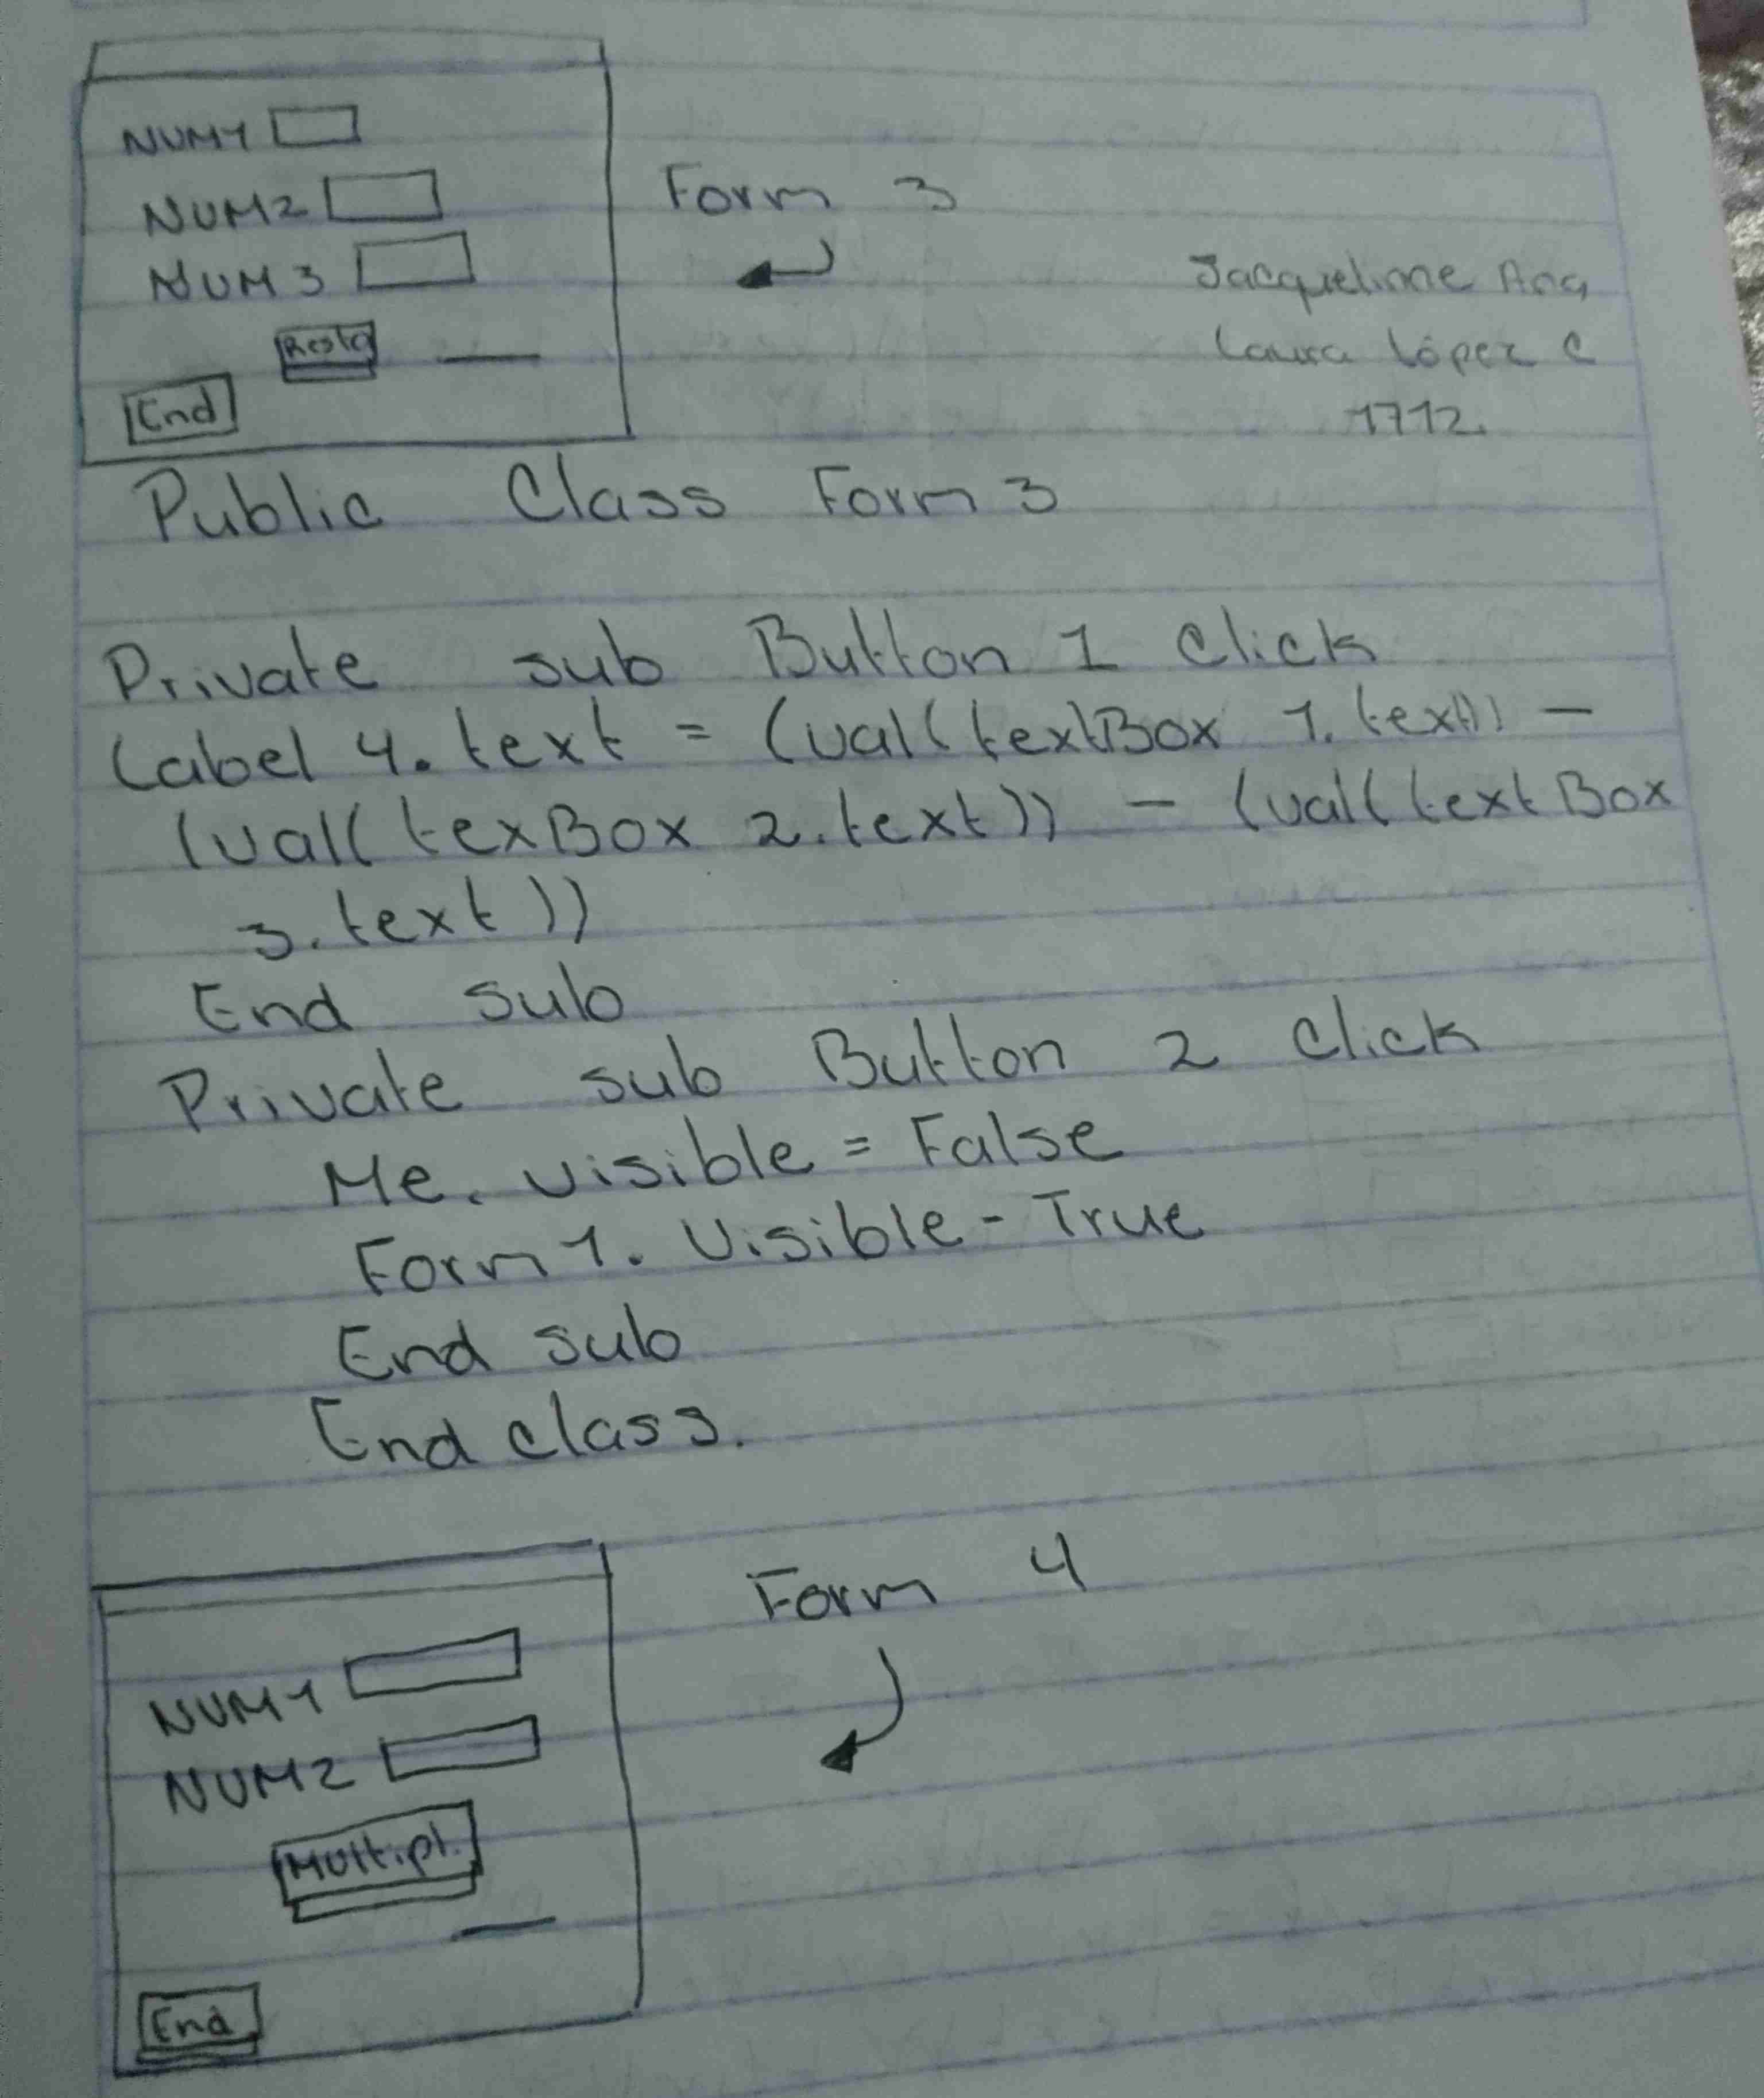 NUM1
NUM2
NUM3
Resta
End
Form 3
Jacqueline Ana
Laura López C
1712.
Public Class Form 3
Private sub Button 1 Click
Label 4. text = (val(textBox 1. text)) -
(val( texBox 2. text)) - (val( textBox
3. text ))
End sub
Private sub Button 2 click
Me. visible = False
Form 1. Visible - True
End sub
End class.
Form 4
NUM1
NUM2
Multipl.
End